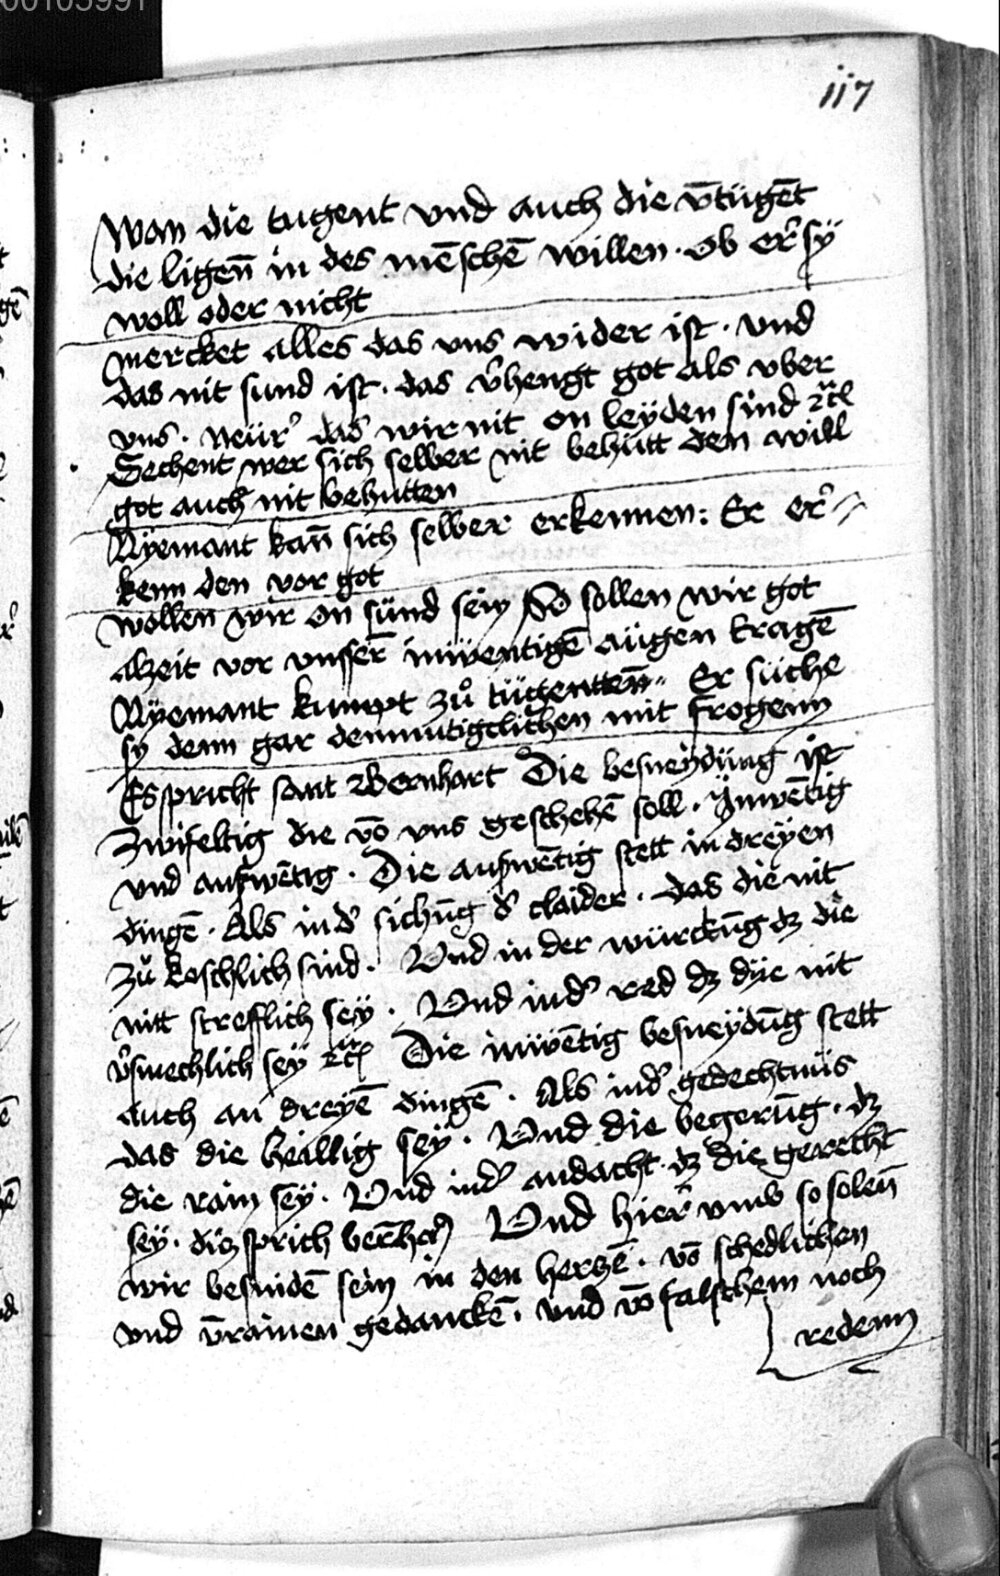 00103991
117
Wan die tugent vnd auch die v̄tügēt
die ligen̄ in des mēschē willen · ob er sÿ
woll oder nicht
Mercket alles das vns wider ist · vnd
das nit sund ist · das v̉hengt got als vber
vns · Neür das wir nit on leÿden sind
Sechent wer sich selber nit behütt den will
got auch nit behutten
Nÿemant kan̄ sich selber erkennen : Er er
kenn den vor got
wöllen wir on sünd sein So sollen wir got
alzeit vor vnsser̄ inwentigē augen tragē
Nÿemant kumpt zů tügentten̄ Er süche
sy denn gar demmutigclichen mit frogenn
Es spricht sant Bernhart Die besneÿdüng ist
Zwifeltig die vō vns geschehē soll · Ynwētig
vnd auswētig · Die auswētig stett in dreÿen
dingē · Als in d̉ sichūg d̉ claider · das die nit
zů koschlich sind · Vnd in der würckūg dz die
nitt strefflich seÿ · Vnd in d̉ red dz dÿe nit
v̉smechlich seÿ Die inwētig besneÿdūg stett
auch an dreÿē dingē · Als in d̉ gedechtnüs
das die heillig seÿ · Vnd die begerūg · dz
die rain seÿ · Vnd in d̉ andacht · dz die gerecht
seÿ · diz sprich Vnd hier vmb so solen̄
wir besnidē sein in den herzē · vō schedlichen
vnd v̄rainen gedanckē · vnd vō falschem noch
redenn